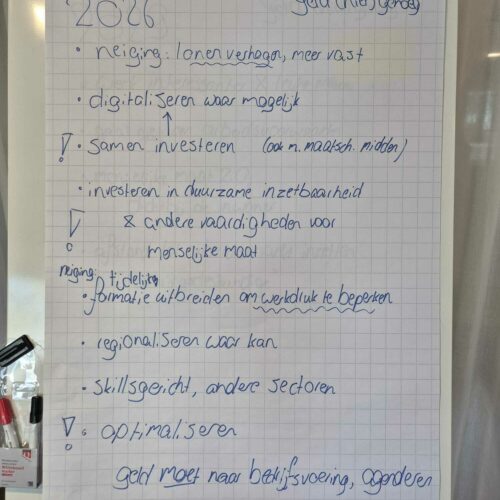 2026
geld (niet) genoeg
• neiging: lonen verhogen, meer vast
• digitaliseren waar mogelijk
! • samen investeren (ook m. maatsch. midden)
• investeren in duurzame inzetbaarheid
! & andere vaardigheden voor
menselijke maat
neiging: tijdelijk
• formatie uitbreiden om werkdruk te beperken
• regionaliseren waar kan
• skillsgericht, andere sectoren
! • optimaliseren
geld moet naar bedrijfsvoering, agenderen